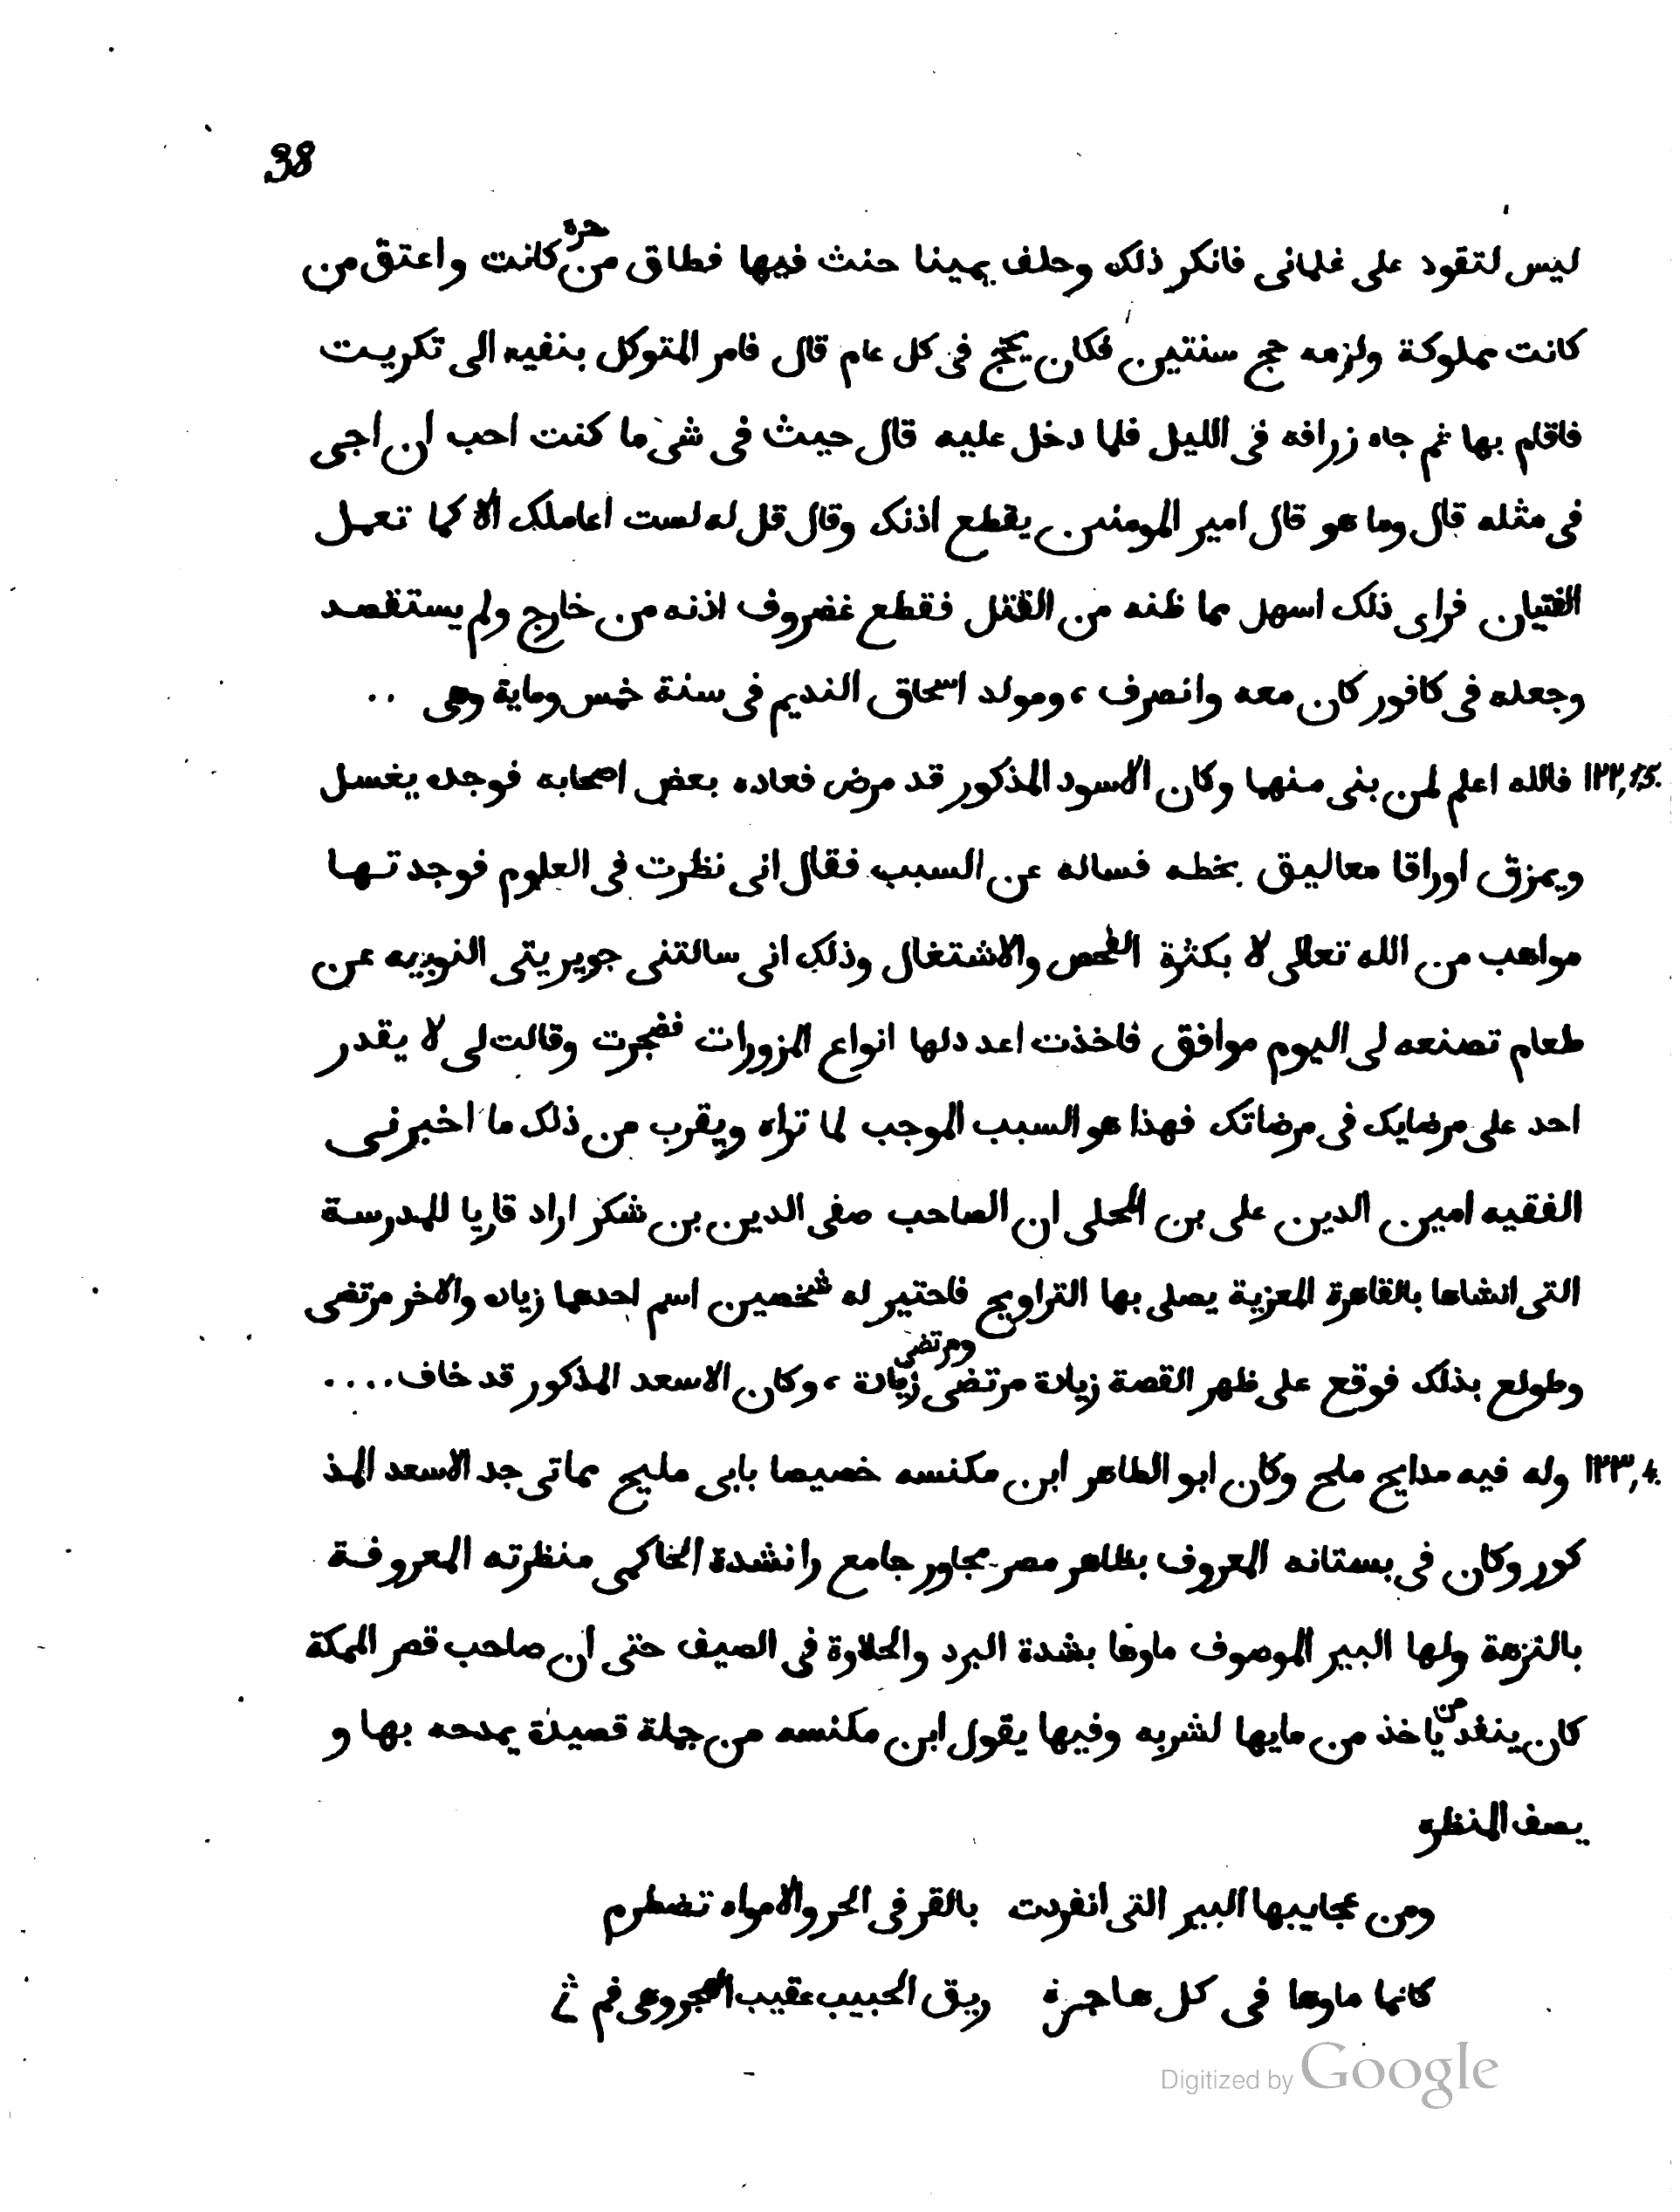 38
ليس لتقود على غلمانى فانكر ذلك وحلف يمينا حنث فيها فطاق من حره كانت واعتق من
كانت مملوكة ولزمه حج سنتين فكان يحج فى كل عام قال فامر المتوكل بنفيه الى تكريت
فاقام بها ثم جاه زرافه فى الليل فلما دخل عليه قال جيث فى شى ما كنت احب ان اجى
فى مثله قال وما هو قال امير المومنين يقطع اذنك وقال قل له لست اعاملك الا كما تعمل
الفتيان فراى ذلك اسهل مما ظنه من القتل فقطع غضروف اذنه من خارج ولم يستقصد
وجعله فى كافور كان معه وانصرف ، ومولد اسحاق النديم فى سنة خمس وماية وهى ..
١٢٢,15. فالله اعلم لمن بنى منهما وكان الاسود المذكور قد مرض فعاده بعض اصحابه فوجده يغسل
ويمزق اوراقا معاليق بخطه فساله عن السبب فقال انى نظرت فى العلوم فوجدتها
مواهب من الله تعالى لا بكثرة الفحص والاشتغال وذلك انى سالتنى جويريتى النوبيه عن
طعام تصنعه لى اليوم موافق فاخذت اعدد لها انواع المزورات فضجرت وقالت لى لا يقدر
احد على مرضايك فى مرضاتك فهذا هو السبب الموجب لما تراه ويقرب من ذلك ما اخبرنى
الفقيه امين الدين على بن المحلى ان الصاحب صفى الدين بن شكر اراد قاريا للمدرسة
التى انشاها بالقاهرة المعزية يصلى بها التراويح فاحتير له شخصين اسم احدهما زياده والاخر مرتضى
وطولع بذلك فوقع على ظهر القصة زيادة مرتضى ومرتضى زيادة ، وكان الاسعد المذكور قد خاف....
١٢٣,4. وله فيه مدايح ملح وكان ابو الطاهر ابن مكنسه خصيصا بابى مليح مماتى جد الاسعد المذ
كور وكان فى بستانه المعروف بظاهر مصر مجاور جامع راشدة الحاكمى منظرته المعروفة
بالنزهة ولها البير الموصوف ماوها بشدة البرد والحلاوة فى الصيف حتى ان صاحب قصر المملكة
كان ينفد من ياخذ من مايها لشربه وفيها يقول ابن مكنسه من جملة قصيدة يمدحه بها و
يصف المنظره
ومن عجايبها البير التى انفردت بالقر فى الحر والامواه تضطرم
كانما ماوها فى كل هاجرة ريق الحبيب عقيب الهجر وهى فم
Digitized by Google